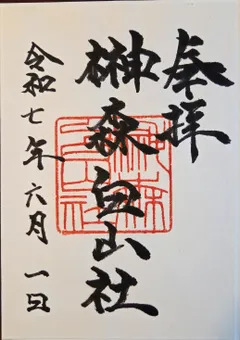 奉拝
榊森白山社
令和七年六月一日